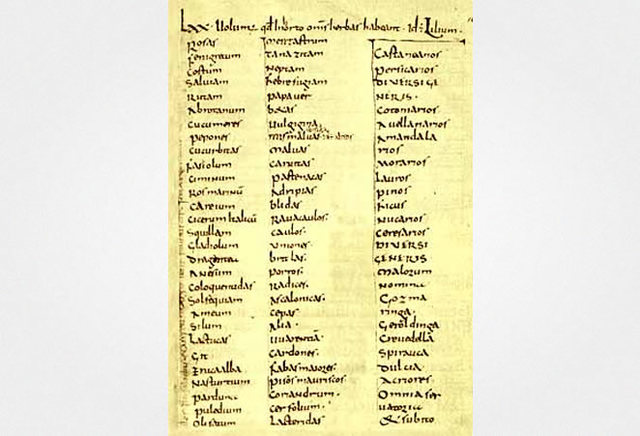 Lxx. Uolumus qđ In horto om̄s herbas habeant. Id ē Lilium.
Rosas
fenigrecum
Costum
Saluiam
Rutam
Abrotanum
Cucumeres
pepones
Cucurbitas
fasiolum
Ciminum
Ros marinū
Careium
Cicerum Italicū
Squillam
Gladiolum
Dragantea
Anesum
Coloquentidas
Solsequiam
Ameum
Silum
Lactucas
Git
Eruca alba
Nasturtium
parduna
puledium
Olisatum
mentastrum
Tanazitam
Neptam
febrefugiam
papauer
betas
Uulgigina
mismaluas
maluas
Caruitas
pastenacas
Adripias
blidas
Rauacaulos.
Caulos.
Uniones.
britlas.
porros.
Radices.
Ascalonicas.
Cepas.
Alia.
Uuarentiā.
Cardones.
fabas maiores.
pisos mauriscos
Coriandrum.
Cerfolium.
Lacteridas
Castanarios
Persicarios
DIVERSI GE
NERIS.
Cotoniarios
Auellanarios
Amandala
rios
Morarios
Lauros
pinos
ficus
Nucarios
Ceresarios
DIVERSI
GENERIS.
Malorum
Nomina
Gozma
ringa.
Geroldinga
Creuedella
Spirauca
Dulcia
Acriores.
Omnia ser
uatoria
& subito